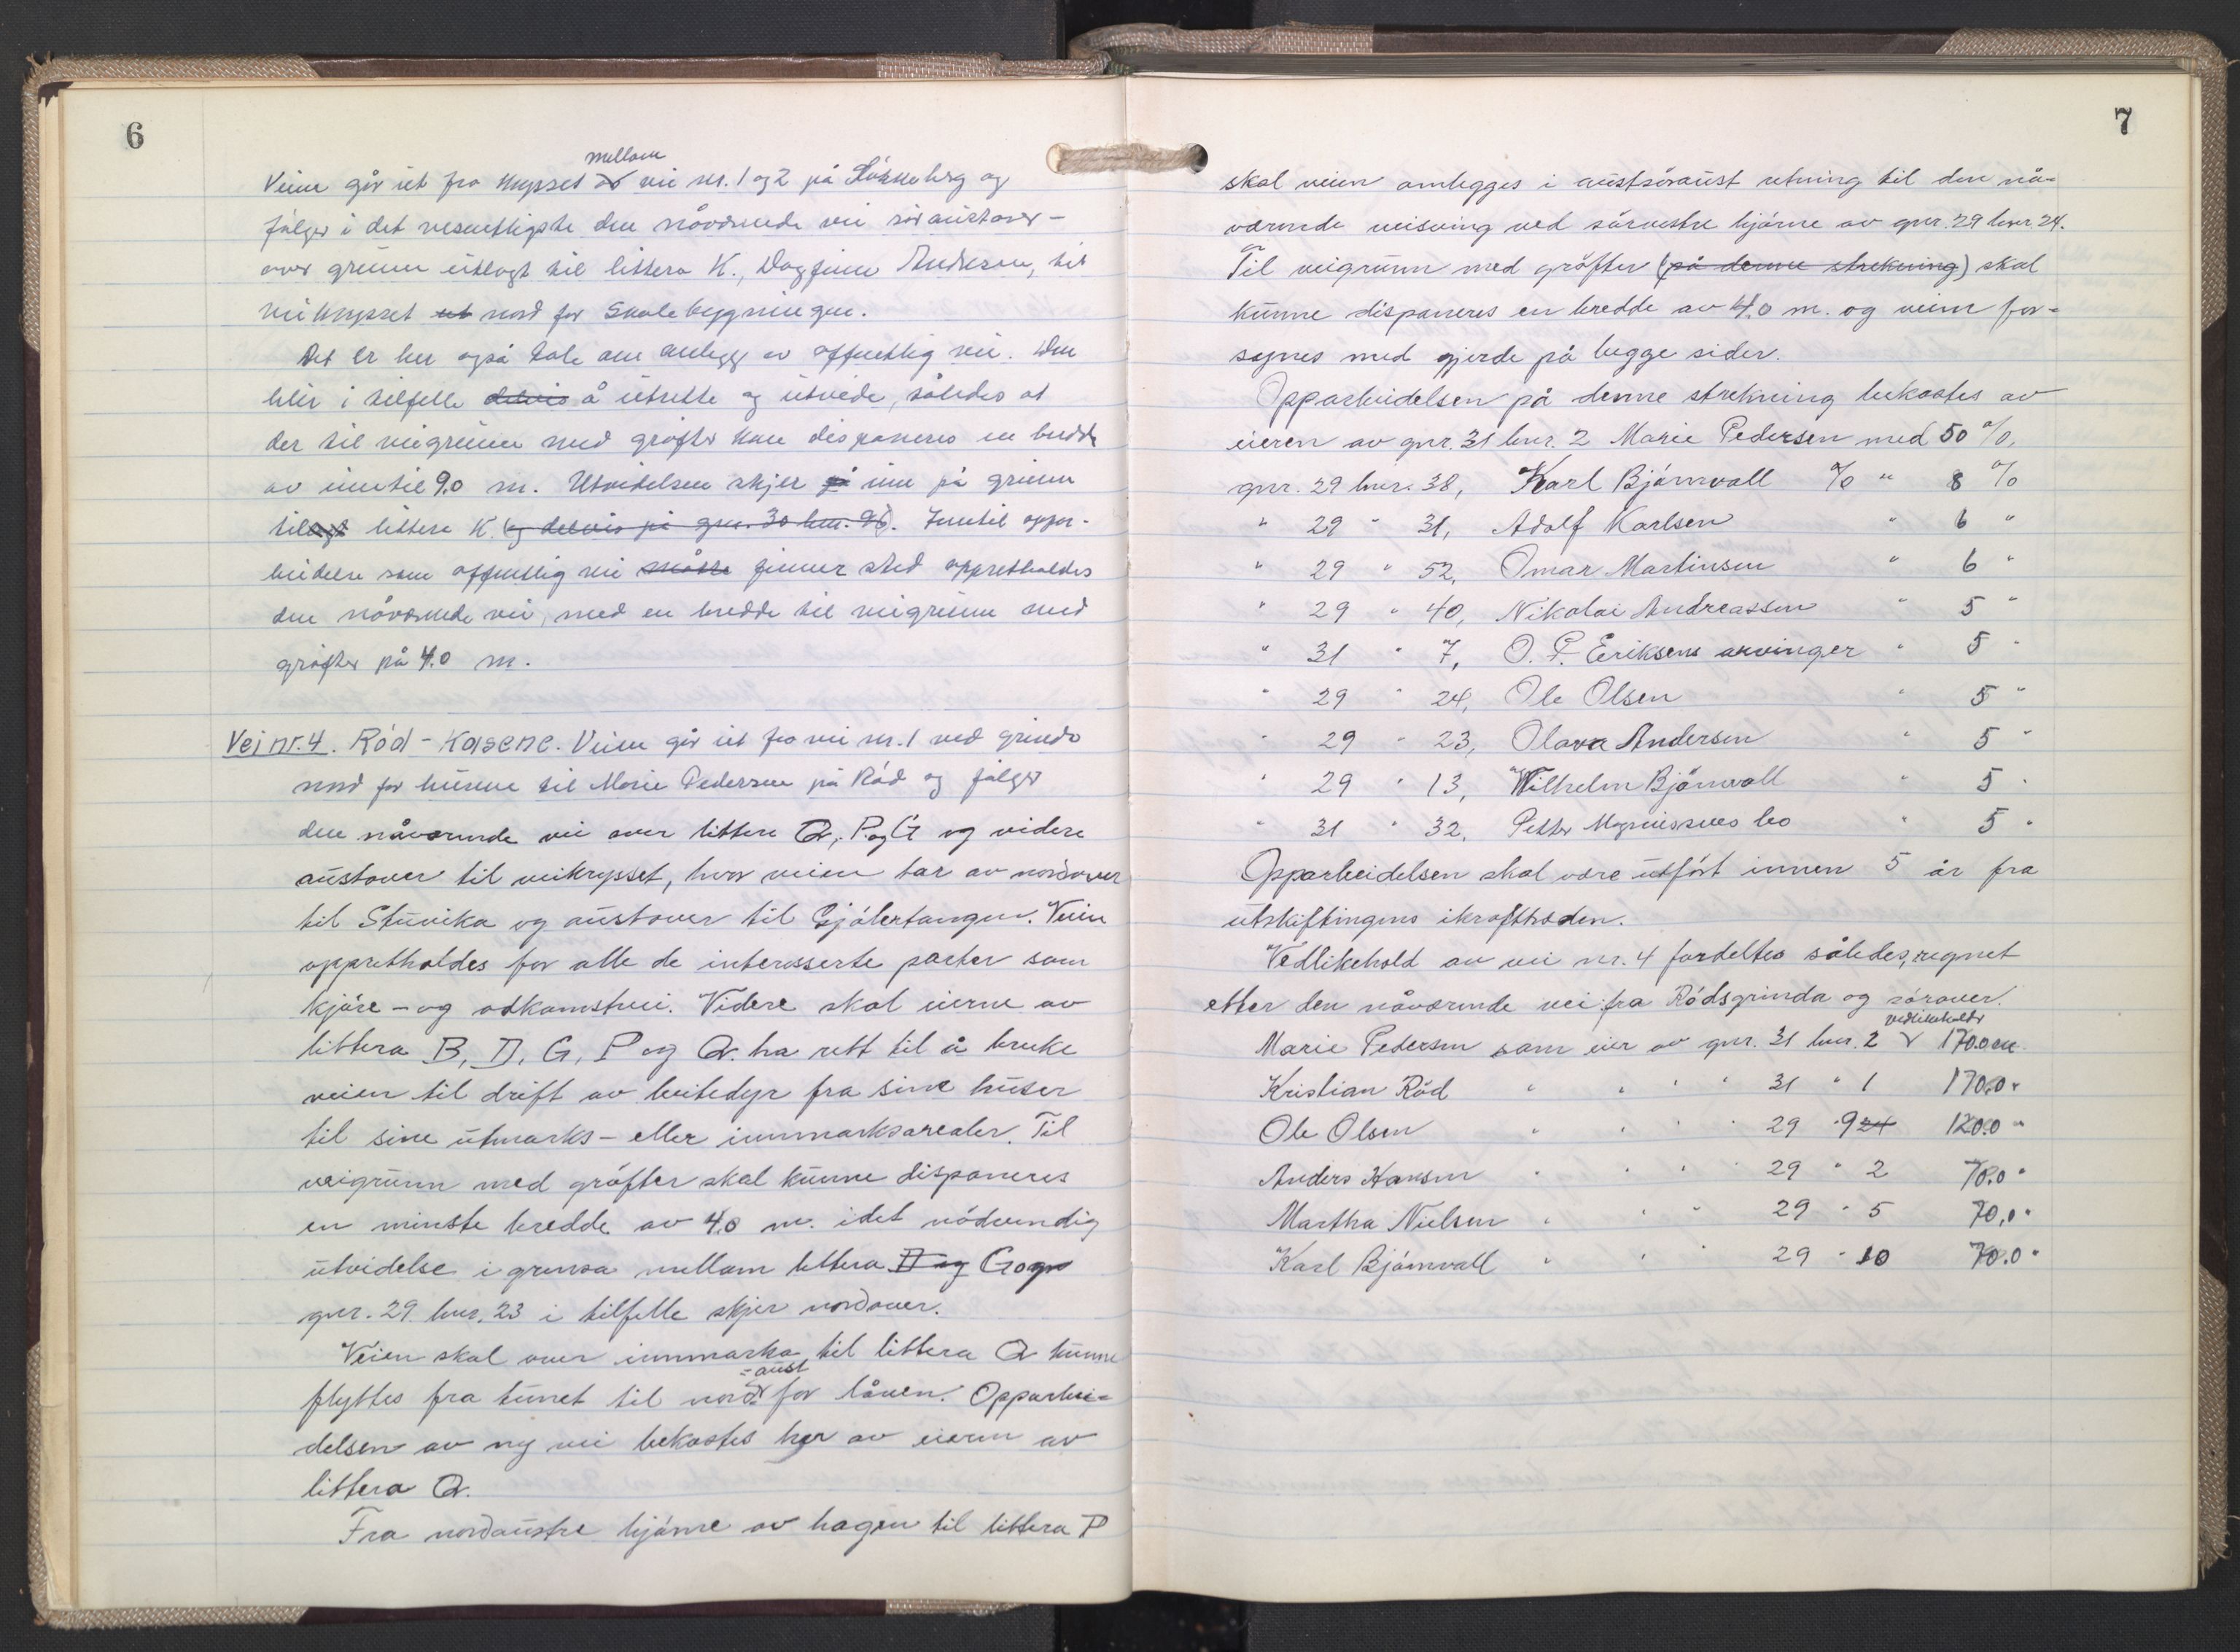 6
mellom
Veien går ut fra krysset av vei nr. 1 og 2 på Løkkeberg og
følger i det vesentligste den nåværende vei søraustover-
over grunn utlagt til littera K., Dagfinn Andersen, til
veikrysset ut nord for Skolebygningen.
Det er her også tale om anlegg av offentlig vei. Den
blir i tilfelle delvis å utrette og utvide, således at
der til veigrunn med grøfter kan disponeres en bredde
av inntil 9.0 m. Utvidelsen skjer på inn på grunn
tillagt littera K. og delvis på gnr. 30 bnr. 96. Inntil oppar-
beidelse som offentlig vei måtte finner sted opprettholdes
den nåværende vei, med en bredde til veigrunn med
grøfter på 4.0 m.
Vei nr. 4. Rød - Kasene. Veien går ut fra vei nr. 1 ved grinda
nord for husene til Marie Pedersen på Rød og følger
den nåværende vei over littera Q, P. og G og videre
austover til veikrysset, hvor veien tar av nordover
til Stuvika og austover til Gjølertangen. Veien
opprettholdes for alle de interesserte parter som
kjøre- og adkomstvei. Videre skal eierne av
littera B, D, G, P og Q. ha rett til å bruke
veien til drift av beitedyr fra sine huser
til sine utmarks- eller innmarksarealer. Til
veigrunn med grøfter skal kunne disponeres
en minste bredde av 4,0 m. idet nødvendig
utvidelse i grensa mellom littera D og G og
gnr. 29 bnr. 23 i tilfelle skjer nordover.
Veien skal over innmarka til littera Q kunne
-aust
flyttes fra tunet til nord for låven. Opparbei-
delsen av ny vei bekostes her av eieren av
littera Q.
Fra nordaustre hjørne av hagen til littera P
7
skal veien omlegges i austsøraust retning til den nå-
værende veisving ved sørvestre hjørne av gnr. 29 bnr. 24.
Til veigrunn med grøfter (på denne strekning) skal
kunne disponeres en bredde av 4,0 m. og veien for-
synes med gjerde på begge sider.
Opparbeidelsen på denne strekning bekostes av
eieren av gnr. 31 bnr. 2 Marie Pedersen med 50 %,
gnr. 29 bnr. 38, Karl Bjørnvall % " 8 %
" 29 " 31, Adolf Karlsen " 6 "
" 29 " 52, Omar Martinsen " 6 "
" 29 " 40, Nikolai Andreassen " 5 "
" 31 " 7, O. P. Eriksens arvinger " 5 "
" 29 " 24, Ole Olsen " 5 "
" 29 " 23, Olava Andersen " 5 "
" 29 " 13, Wilhelm Bjørnvall " 5 "
" 31 " 32, Petter Magnussens bo " 5 "
Opparbeidelsen skal være utført innen 5 år fra
utskiftingens ikrafttreden.
Vedlikehold av vei nr. 4 fordeltes således, regnet
etter den nåværende vei fra Rødsgrinda og sørover.
vedlikeholdr
Marie Pedersen som eier av gnr. 31 bnr. 2 170.0 m.
Kristian Rød " " " " 31 " 1 170.0 "
Ole Olsen " " " " 29 " 9 24 120.0 "
Anders Hansen " " " " 29 " 2 70.0 "
Martha Nielsen " " " 29 " 5 70,0 "
Karl Bjørnvall " " " 29 " 10 70.0 "